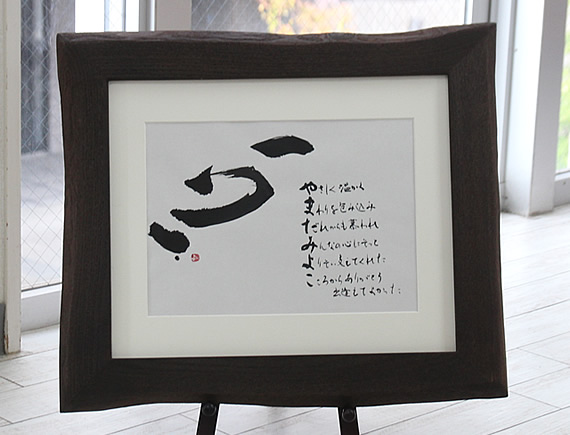 心
やさしく温かく
まわりを包み込み
だれからも慕われ
みんなの心にそっと
よりそい てくれた
こころからありがとう
出逢えてよかった